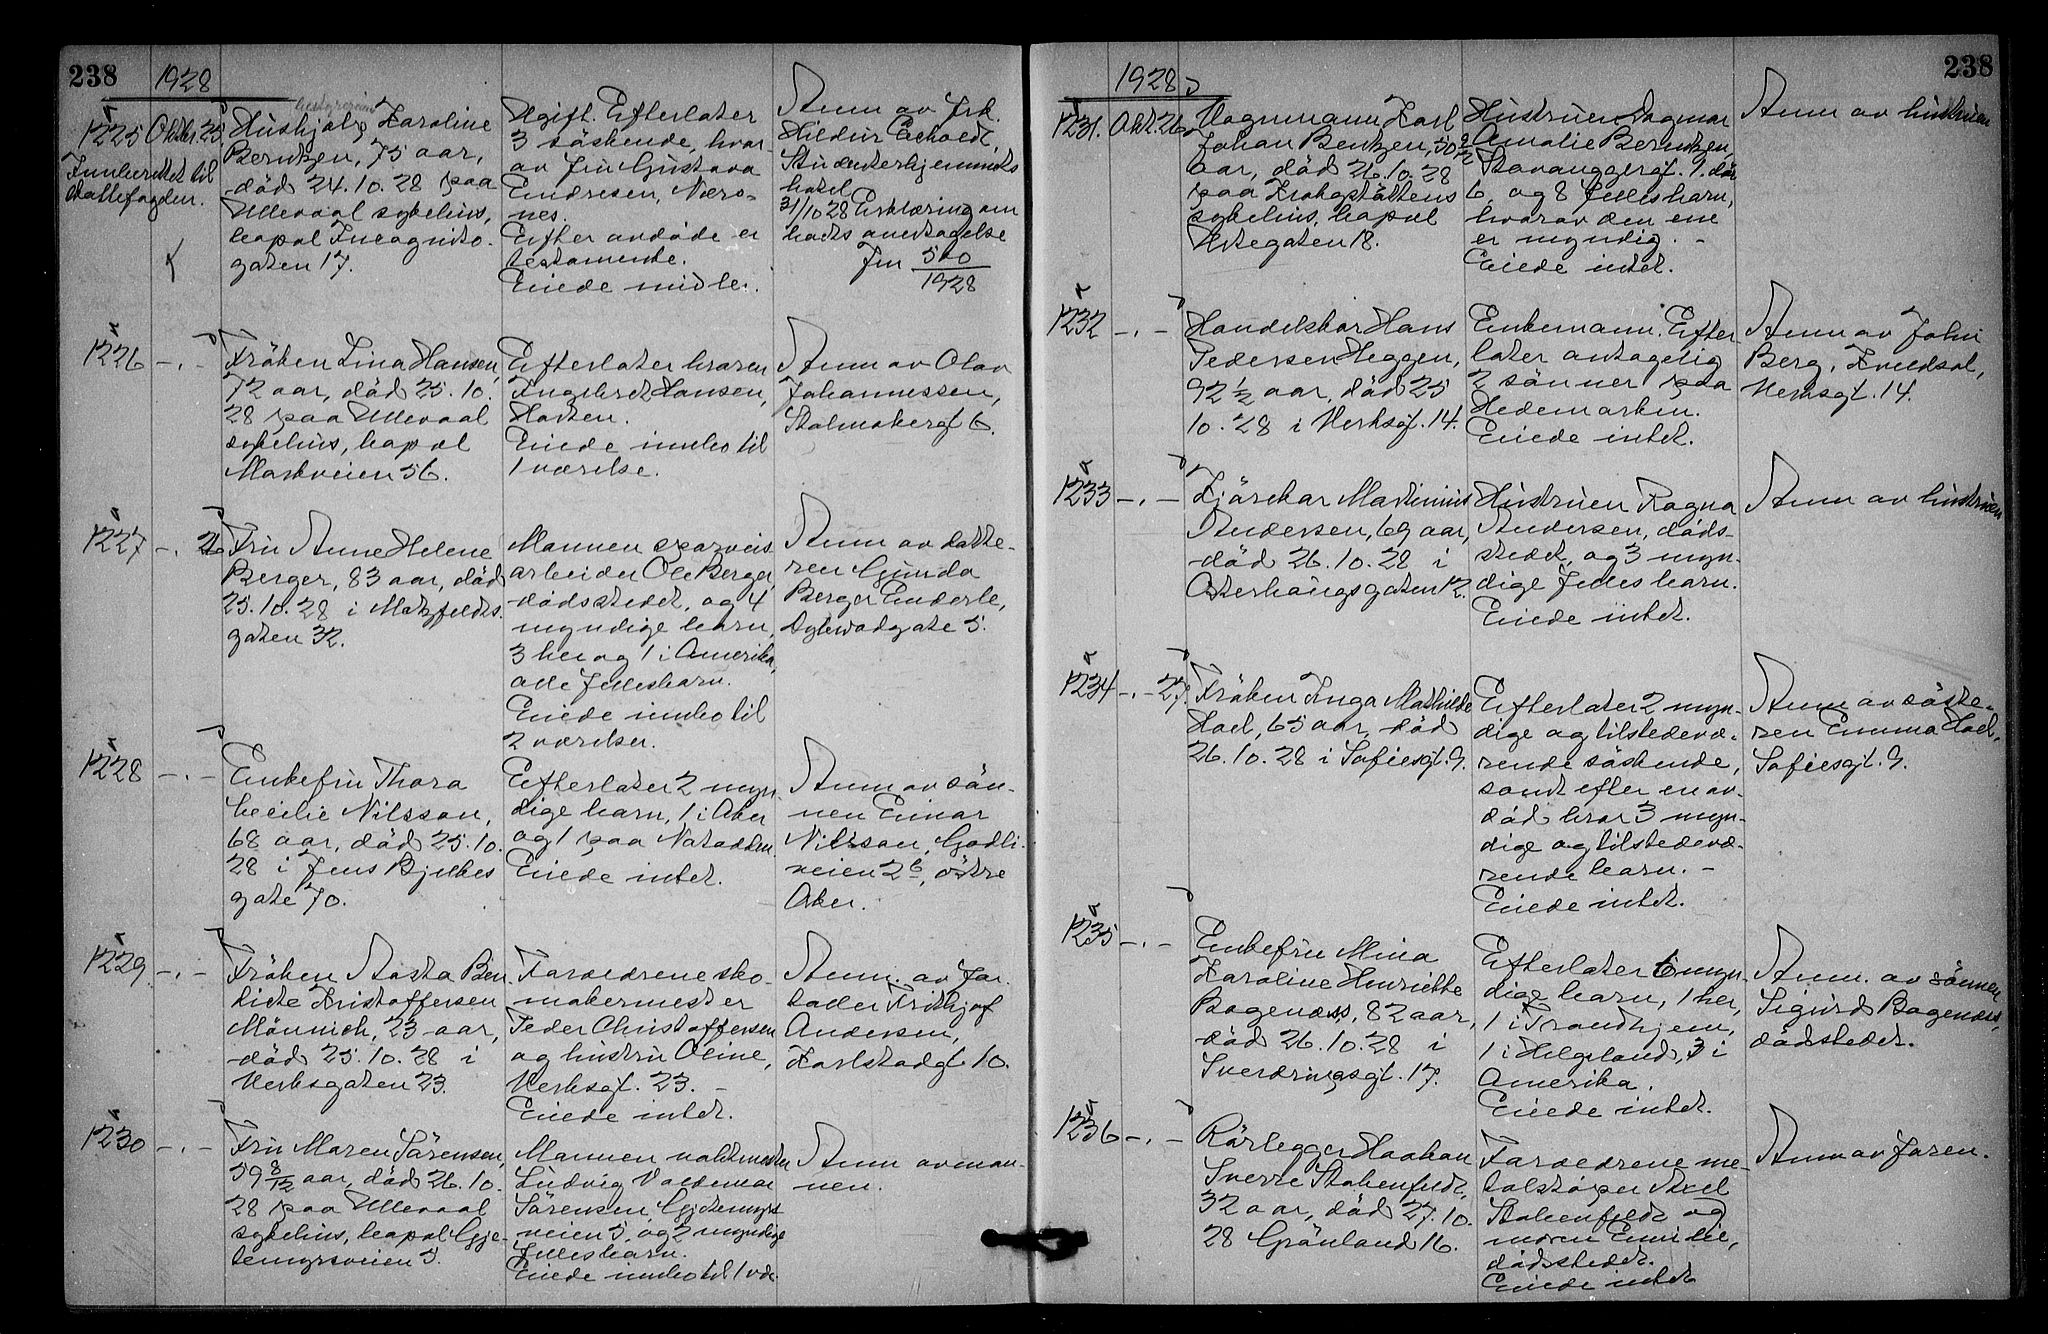 238
1928
1225
Oktbr. 25
Innberettet til
skattefogden.
Hushjælp Karoline
Berntzen, 75 aar,
död 24.10.28 paa
Ullevaal sykehus,
bopæl Incognito-
gaten 17.
Ugift. Efterlater
3 söskende, hvor-
av fru Gustava
Endresen, Nærö-
nes.
Efter avdöde er
testamente.
Eiede midler.
Anm av frk.
Hildur
Studenterhjemmets
hotel
31/10 28 Erklæring om
bodts overtagelse
Jnr 500
1928
1226
-.-
Fröken Lina Hansen,
72 aar, död 25.10.
28 paa Ullevaal
sykehus, bopæl
Markveien 56.
Efterlater broren
Ingebret Hansen,
Horten.
Eiede innbo til
1 værelse.
Anm av Olav
Johannessen,
Stolmakergt 6.
1227
-. 26
Fru Anne Helene
Berger, 83 aar, död
25.10.28 i Motzfeldts
gaten 32.
Mannen sporveis
arbeider Ole Berger,
dödsstedet, og 4
myndige barn,
3 her og 1 i Amerika,
alle fellesbarn.
Eiede innbo til
2 værelser.
Anm av datte-
ren Gunda
Berger Enderle,
Dybwadgate 5.
1228
-.-
Enkefru Thora
Cecilie Nilsson,
68 aar, död 25.10.
28 i Jens Bjelkes
gate 70.
Efterlater 2 myn
dige barn, 1 i Aker
og 1 paa Notodden.
Eiede intet.
Anm av sön-
nen Einar
Nilsson, Godli-
veien 2 b, östre
Aker.
1229
-.-
Fröken Aasta Ben
dicte Kristoffersen
Mönnich, 23 aar,
död 25.10.28 i
Verksgaten 23.
Forældrene sko-
makermester
Peder Christoffersen
og hustru Oline,
Verksgt. 23. -
Eiede intet.
Anm. av for-
lover Frithjof
Andersen,
Karlstadgt 10.
1230
-.-
Fru Maren Sörensen,
59 8/12 aar, död 26.10.
28 paa Ullevaal
sykehus, bopæl Gje-
temyrsveien 5.
Mannen vaktmester
Ludvig Valdemar
Sörensen Gjetemyrs
veien 5, og 2 myndige
fellesbarn.
Eiede innbo til 1 væ.
Anm av man-
nen.
238
1928
1231.
Okt. 26
Vognmann Karl
Johan Bentzen, 50 9/12
aar, död 26.10.28
paa Krohgstöttens
sykehus, bopæl
Urtegaten 18.
Hustruen Dagmar
Amalie Berntzen,
Stavangergt. 1. dör
6, og 8 fellesbarn,
hvorav den ene
er myndig. -
Eiede intet.
Anm av hustruen
1232
-.-
Handelskar Hans
Pedersen Heggen,
92 1/2 aar, död 25
10.28 i Verksgt. 14.
Enkemann. Efter
later antagelig
2 sönner paa
Hedemarken.
Eiede intet.
Anm av John
Berg, Kveldsol,
Verksgt. 14.
1233
-.-
Kjörekar Martinius
Andersen, 69 aar,
död 26.10.28 i
Osterhausgaten 12.
Hustruen Ragna
Andersen, döds-
stedet, og 3 myn-
dige fellesbarn.
Eiede intet.
Anm av hustruen
1234
-.- 27.
Fröken Inga Mathilde
Hoel, 65 aar, död
26.10.28 i Sofiesgt. 9.
Efterlater 2 myn-
dige og tilstedevæ-
rende söskende,
samt efter en av-
död bror 3 myn-
dige og tilstedevæ-
rende barn. -
Eiede intet.
Anm av söste-
ren Emma Hoel,
Sofiesgt. 9.
1235
-.-
Enkefru Mina
Karoline Henriette
Bogenæss, 82 aar,
död 26.10.28 i
Sverdrupsgt. 17.
Efterlater 6 myn-
dige barn, 1 her,
1 i Trondhjem,
1 i Helgeland, 3 i
Amerika.
Eiede intet.
Anm. av sönnen
Sigurd Bogenæss,
dödsstedet.
1236
-.-
Rörlegger Haakon
Sverre Stokenfeldt,
32 aar, död 27.10.
28 Grönland 16.
Forældrene me-
talstöper Axel
Stokenfeldt og
moren Emilie,
dödsstedet.
Eiede intet
Anm av faren.